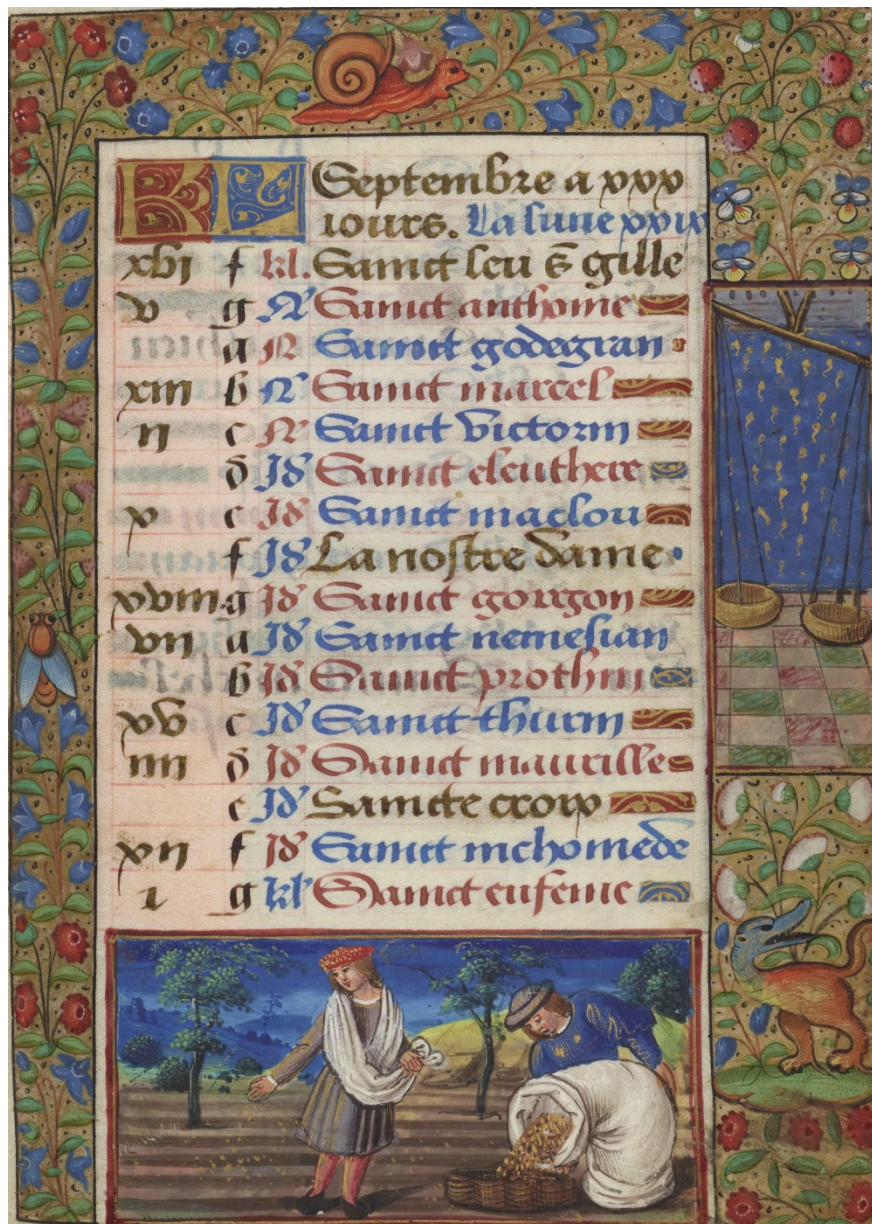 KL Septembre a xxx
iours. La lune xxix
xvi f kl. Sainct leu & gille
v g N Sainct anthoine
a N Sainct godegran
xiii b N Sainct marcel
ii c N Sainct victorin
d Id Sainct eleuthere
x e Id Sainct maclou
f Id La nostre dame
xviii g Id Sainct gorgon
vii a Id Sainct nemesian
b Id Sainct prothin
xv c Id Sainct thurin
iiii d Id Sainct maurille
e Id Saincte croix
xii f Id Sainct nichomede
i g kl Sainct eufeme